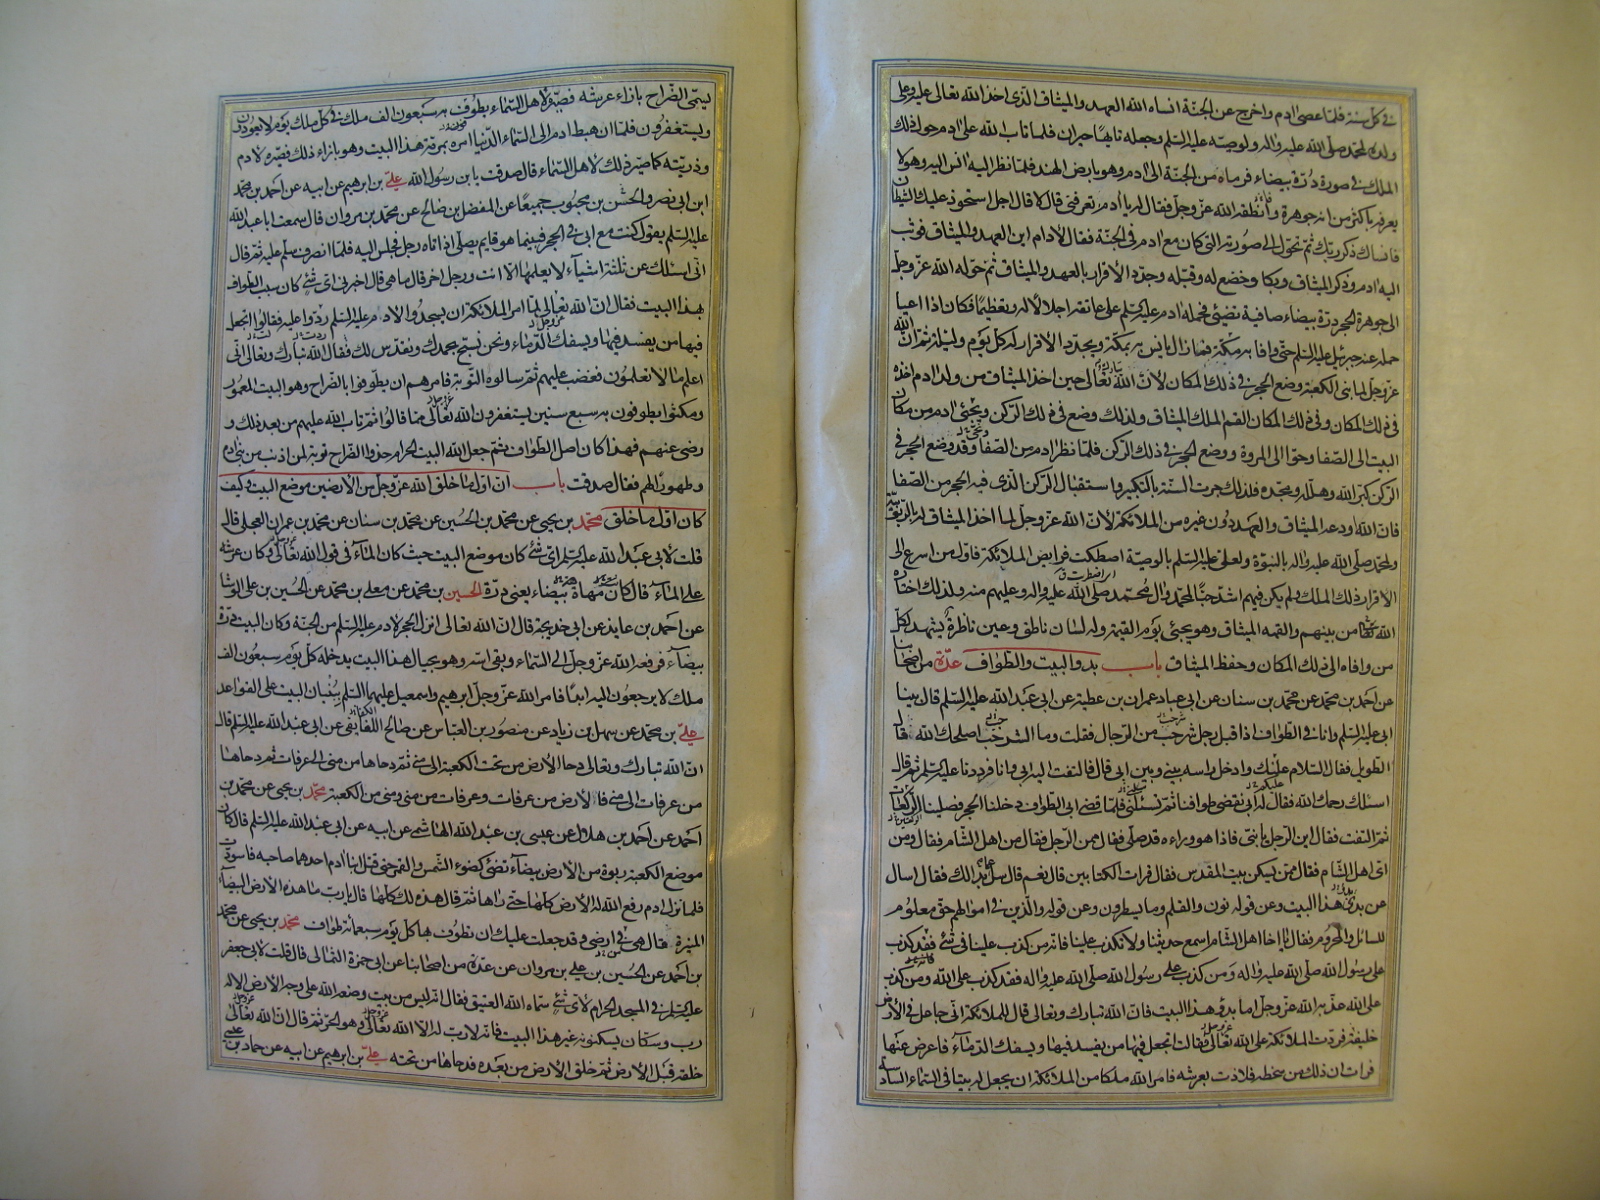 في كل سنة فلما عصى ادم واخرج عن الجنة انساه الله العهد والميثاق الذى اخذ الله تعالى عليه وعلى
ولده لمحمد صلى الله عليه واله ولوصيه عليه السلم وجعله تايها حيران فلما تاب الله على ادم حول ذلك
الملك في صورة درة بيضاء فرماه من الجنة الى ادم وهو بارض الهند فلما نظر اليه انس اليه وهو لا
يعرفه باكثر من انه جوهرة وانطقه الله عز وجل فقال له يا ادم تعرفني قال لا قال اجل استحوذ عليك الشيطان
فانساك ذكر ربك ثم تحول الى صورته التى كان مع ادم في الجنة فقال لادم اين العهد والميثاق فوثب
اليه ادم وذكر الميثاق وبكا وخضع له وقبله وجدد الاقرار بالعهد والميثاق ثم حوله الله عز وجل
الى جوهرة الحجر درة بيضاء صافية تضئ فحمله ادم عليه السلم على عاتقه اجلالا له وتعظيما فكان اذا اعيا
حمله عنه جبرئيل عليه السلم حتى وافا به مكة فما زال يانس به بمكة ويجدد الاقرار له كل يوم وليلة ثم ان الله
عز وجل لما بنى الكعبة وضع الحجر في ذلك المكان لان الله تعالى حين اخذ الميثاق من ولد ادم اخذه
في ذلك المكان وفي ذلك المكان القم الملك الميثاق ولذلك وضع في ذلك الركن ونحى ادم من مكان
البيت الى الصفا وحوا الى المروة ووضع الحجر في ذلك الركن فلما نظر ادم من الصفا وقد وضع الحجر في
الركن كبر الله وهلله ومجده فلذلك جرت السنة بالتكبير واستقبال الركن الذى فيه الحجر من الصفا
فان الله اودعه الميثاق والعهد دون غيره من الملائكة لان الله عز وجل لما اخذ الميثاق له بالربوبية
ولمحمد صلى الله عليه واله بالنبوة ولعلى عليه السلم بالوصية اصطكت فرايص الملائكة فاول من اسرع الى
الاقرار ذلك الملك ولم يكن فيهم اشد حبا لمحمد وال محمد صلى الله عليه واله وعليهم منه ولذلك اختاره
الله من بينهم والقمه الميثاق وهو يجئ يوم القيمة وله لسان ناطق وعين ناظرة يشهد لكل
من وافاه الى ذلك المكان وحفظ الميثاق باب بدو البيت والطواف عدة من اصحابنا
عن احمد بن محمد عن محمد بن سنان عن ابى عباد عمران بن عطية عن ابى عبد الله عليه السلم قال بينا
ابى عليه السلم وانا في الطواف اذ اقبل رجل شرجب من الرجال فقلت وما الشرجب اصلحك الله قال
الطويل فقال السلام عليك وادخل راسه بينى وبين ابى قال فالتفت اليه ابى وانا فرددنا عليه السلم ثم قال
اسئلك رحمك الله فقال له ابى نقضى طوافنا ثم تسئلنى فلما قضى ابى الطواف دخلنا الحجر فصلينا الركعات
ثم التفت فقال اين الرجل يا بنى فاذا هو وراءه قد صلى فقال ممن الرجل فقال من اهل الشام فقال ومن
اى اهل الشام فقال ممن يسكن بيت المقدس فقال قرات الكتابين قال نعم قال سل عما بدا لك فقال اسال
عن بدو هذا البيت وعن قوله نون والقلم وما يسطرون وعن قوله والذين في اموالهم حق معلوم
للسائل والمحروم فقال يا اخا اهل الشام اسمع حديثنا ولا تكذب علينا فانه من كذب علينا في شئ فقد كذب
على رسول الله صلى الله عليه واله ومن كذب على رسول الله صلى الله عليه واله فقد كذب على الله ومن كذب
على الله عذبه الله عز وجل اما بدو هذا البيت فان الله تبارك وتعالى قال للملائكة انى جاعل في الارض
خليفة فردت الملائكة على الله تعالى فقالت اتجعل فيها من يفسد فيها ويسفك الدماء فاعرض عنها
فرات ان ذلك من سخطه فلاذت بعرشه فامر الله ملكا من الملائكة ان يجعل له بيتا في السماء السادسة
يسمى الضراح بازاء عرشه فصيره لاهل السماء يطوف به سبعون الف ملك في كل يوم لا يعودون
ويستغفرون فلما ان هبط ادم الى السماء الدنيا امره بمرمة هذا البيت وهو بازاء ذلك فصيره لادم
وذريته كما صير ذلك لاهل السماء قال صدقت يا بن رسول الله على بن ابرهيم عن ابيه عن احمد بن محمد
ابن ابى نصر والحسن بن محبوب جميعا عن المفضل بن صالح عن محمد بن مروان قال سمعت ابا عبد الله
عليه السلم يقول كنت مع ابى في الحجر فبينما هو قايم يصلى اذ اتاه رجل فجلس اليه فلما انصرف سلم عليه ثم قال
انى اسئلك عن ثلثة اشيآء لا يعلمها الا انت ورجل اخر قال ما هى قال اخبرنى اى شئ كان سبب الطواف
بهذا البيت فقال ان الله تعالى لما امر الملائكة ان يسجدوا لادم عليه السلم ردوا عليه فقالوا اتجعل
فيها من يفسد فيها ويسفك الدماء ونحن نسبح بحمدك ونقدس لك فقال الله تبارك وتعالى انى
اعلم ما لا تعلمون فغضب عليهم ثم سالوه التوبة فامرهم ان يطوفوا بالضراح وهو البيت المعمور
ومكثوا يطوفون به سبع سنين يستغفرون الله تعالى مما قالوا ثم تاب الله عليهم من بعد ذلك و
رضى عنهم فهذا كان اصل الطواف ثم جعل الله البيت الحرام حذو الضراح توبة لمن اذنب من بنى ادم
وطهورا لهم فقال صدقت باب ان اول ما خلق الله عز وجل من الارضين موضع البيت وكيف
كان اول ما خلق محمد بن يحيى عن محمد بن الحسين عن محمد بن سنان عن محمد بن عمران العجلى قال
قلت لابى عبد الله عليه السلم اى شئ كان موضع البيت حيث كان المآء في قول الله تعالى وكان عرشه
على المآء قال كان مهاة بيضاء يعنى درة الحسين بن محمد عن معلى بن محمد عن الحسين بن على الوشا
عن احمد بن عايذ عن ابى خديجة قال ان الله تعالى انزل الحجر لادم عليه السلم من الجنة وكان البيت درة
بيضآء فرفعه الله عز وجل الى السماء وبقى اسه وهو بحيال هذا البيت يدخله كل يوم سبعون الف
ملك لا يرجعون اليه ابدا فامر الله عز وجل ابرهيم واسمعيل عليهما السلم ببنيان البيت على القواعد
على بن محمد عن سهل بن زياد عن منصور بن العباس عن صالح اللفايفى عن ابى عبد الله عليه السلم قال
ان الله تبارك وتعالى دحا الارض من تحت الكعبة الى منى ثم دحاها من منى الى عرفات ثم دحاها
من عرفات الى منى فالارض من عرفات وعرفات من منى ومنى من الكعبة محمد بن يحيى عن محمد بن
احمد عن احمد بن هلال عن عيسى بن عبد الله الهاشمى عن ابيه عن ابى عبد الله عليه السلم قال كان
موضع الكعبة ربوة من الارض بيضآء تضئ كضوء الشمس والقمر حتى قتل ابنا ادم احدهما صاحبه فاسودت
فلما نزل ادم رفع الله له الارض كلها حتى راها ثم قال هذه لك كلها قال يا رب ما هذه الارض البيضاء
المنيرة قال هى في ارضى وقد جعلت عليك ان تطوف بها كل يوم سبعمائة طواف محمد بن يحيى عن محمد
بن احمد عن الحسين بن على بن مروان عن عدة من اصحابنا عن ابى حمزة الثمالى قال قلت لابى جعفر
عليه السلم في المسجد الحرام لاى شئ سماه الله العتيق فقال انه ليس من بيت وضعه الله على وجه الارض الا له
رب وسكان يسكنونه غير هذا البيت فانه لا رب له الا الله تعالى وهو الحر ثم قال ان الله تعالى
خلقه قبل الارض ثم خلق الارض من بعده فدحاها من تحته على بن ابرهيم عن ابيه عن حماد بن